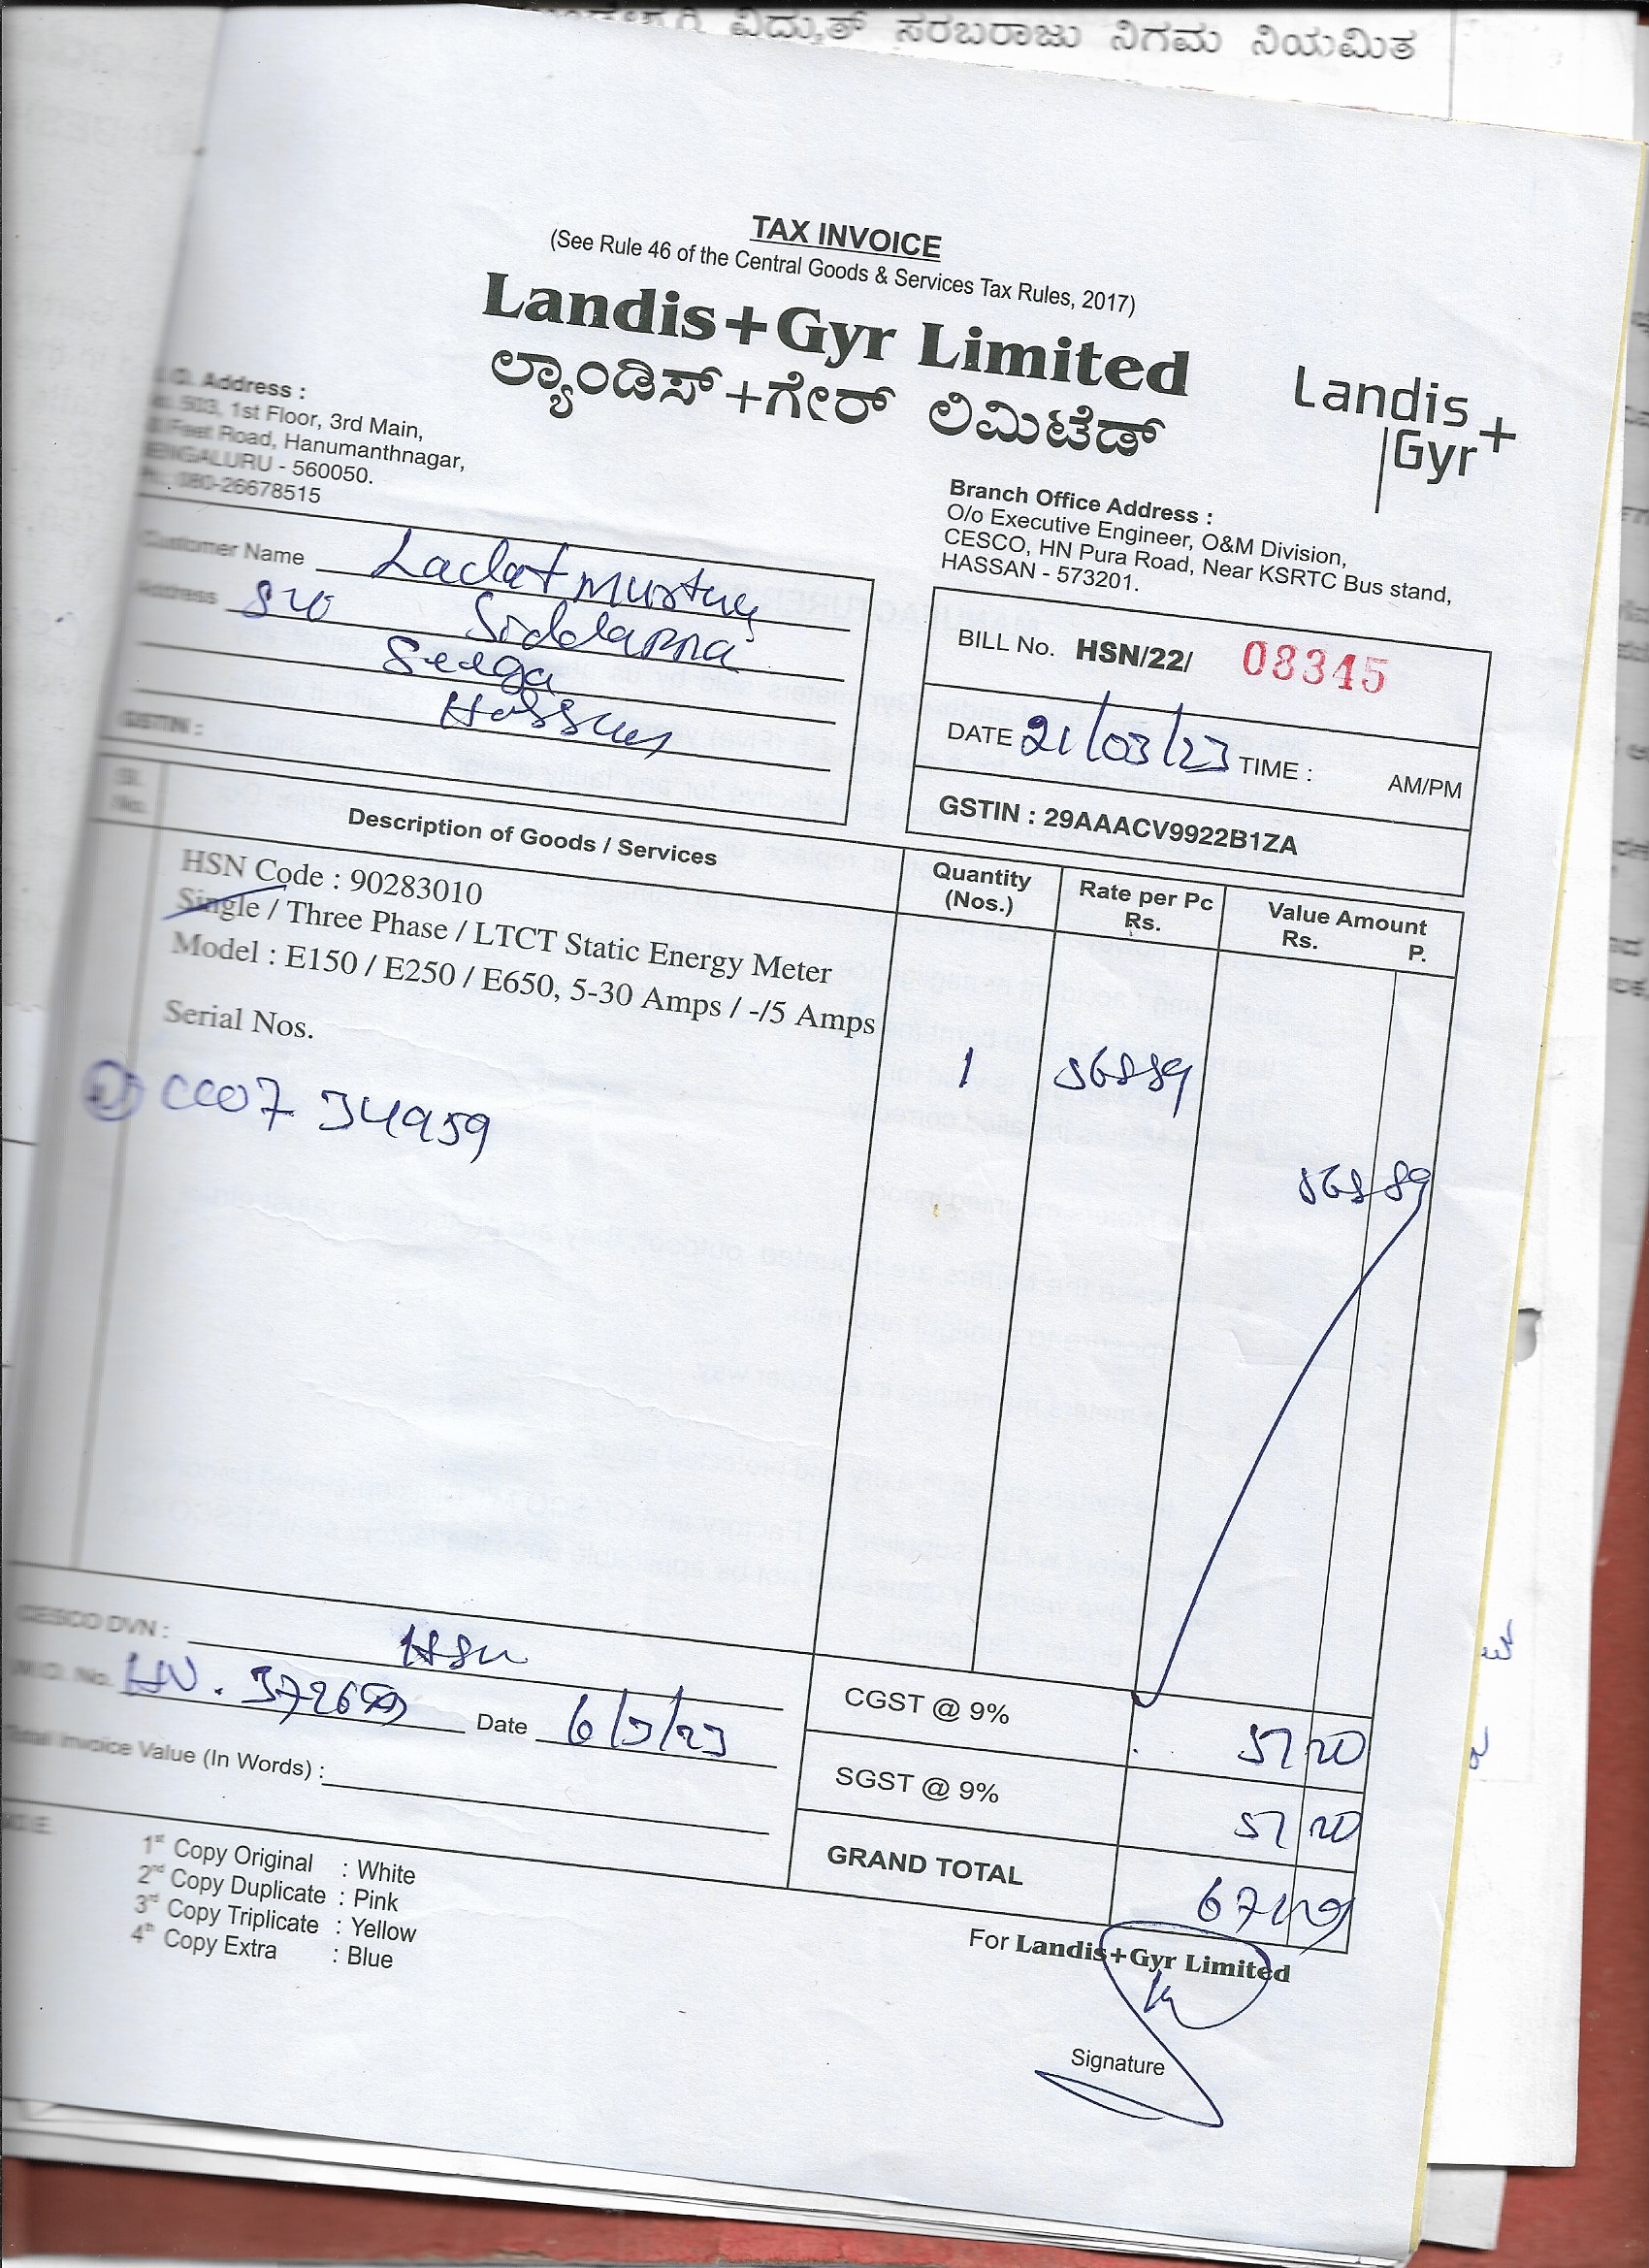 ವಿದ್ಯುತ್ ಸರಬರಾಜು ನಿಗಮ ನಿಯಮಿತ
TAX INVOICE
(See Rule 46 of the Central Goods & Services Tax Rules, 2017)
Landis+Gyr Limited
ಲ್ಯಾಂಡಿಸ್+ಗೇರ್ ಲಿಮಿಟೆಡ್
Landis+
Gyr
Address :
503, 1st Floor, 3rd Main,
Feet Road, Hanumanthnagar,
BENGALURU - 560050.
Ph.: 080-26678515
Branch Office Address :
O/o Executive Engineer, O&M Division,
CESCO, HN Pura Road, Near KSRTC Bus stand,
HASSAN - 573201.
Customer Name
Address S/o Siddappa
Seega
Hassan
GSTIN :
BILL No. HSN/22/ 08345
DATE 21/03/23 TIME : AM/PM
GSTIN : 29AAACV9922B1ZA
Sl. No. Description of Goods / Services Quantity (Nos.) Rate per Pc Rs. Value Amount Rs. P.
HSN Code : 90283010
Single / Three Phase / LTCT Static Energy Meter
Model : E150 / E250 / E650, 5-30 Amps / -/5 Amps
Serial Nos.
1 568 89
34959
568 89
CESCO DVN : HSN
Date 6/3/23
Total Invoice Value (In Words) :
CGST @ 9% 51 20
SGST @ 9% 51 20
GRAND TOTAL
NOTE
1st Copy Original : White
2nd Copy Duplicate : Pink
3rd Copy Triplicate : Yellow
4th Copy Extra : Blue
For Landis+Gyr Limited
Signature